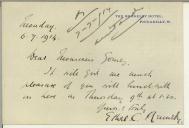 THE BERKELEY HOTEL,
PICCADILLY, W.
Monday
6.7.1914.
Dear Monsieur Gomes,
It will give me much
pleasure if you will lunch with
us here on Thursday 9th at 1.30.
Yours truly
Ethel C.